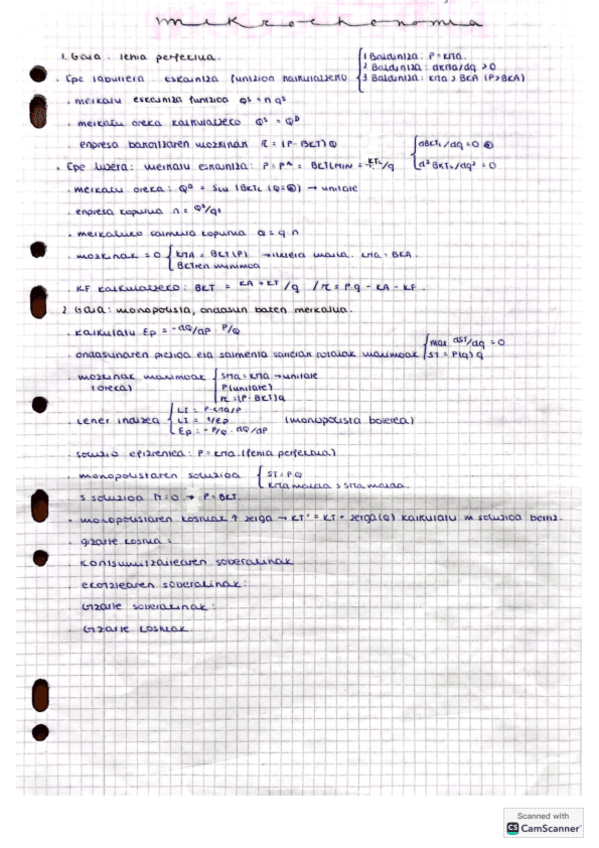 mikroekonomia
1. Gaia: lehia perfektua.
. Epe laburrera: eskaintza funtzioa kalkulatzeko { 1 Baldintza: P = KMA
2 Baldintza: dKMA/dq > 0
3 Baldintza: KMA > BKA (P>BKA)
. merkatu eskaintza funtzioa Qs = n qs
. merkatu oreka kalkulatzeko Qs = QD
. enpresa bakoitzaren mozkinak π = (P - BKT) Q
{ dBKTL/dq = 0
d² BKTL/dq² = 0
. Epe luzera: merkatu eskaintza: P = P^ = BKTLMIN = KTL/q
. merkatu oreka: QD = SLU (BKTL (Q=*)) → unitate
. enpresa kopurua n = Qs/qs
. merkatuko salmenta kopurua Q = q n
. mozkinak = 0 { KMA = BKT (P) → itxiera maila: KMA = BKA.
BKTren minimoa
. KF kalkulatzeko: BKT = KA + KF/q / π = P.q - KA - KF.
2. Gaia: monopolista, ondasun baten merkatua.
. kalkulatu Ep = -dQ/dP . P/Q
. ondasunaren prezioa eta salmenta sarreran totalak maximoak { max dST/dq = 0
ST = P(q) q
. mozkinak maximoak (oreka) { SMA = KMA → unitate
P (unitate)
π = (P - BKT) q
. Lener indizea { LI = P-KMA/P
LI = 1/Ep
Ep = - P/Q . dQ/dP
(monopolista boterea)
. soluzio efizientea: P = KMA. (lehia perfektua)
. monopolistaren soluzioa { ST = P.Q
KMA maila > SMA maila.
. S soluzioa π = 0 → P = BKT.
. monopolistaren kostuak ↑ zerga → KT' = KT + zerga (Q) kalkulatu m soluzioa berriz.
. gizarte kostua =
. kontsumitzailearen soberakinak
. ekoizlearen soberakinak:
. Gizarte soberakinak:
. Gizarte kostuak.
Scanned with
CS CamScanner